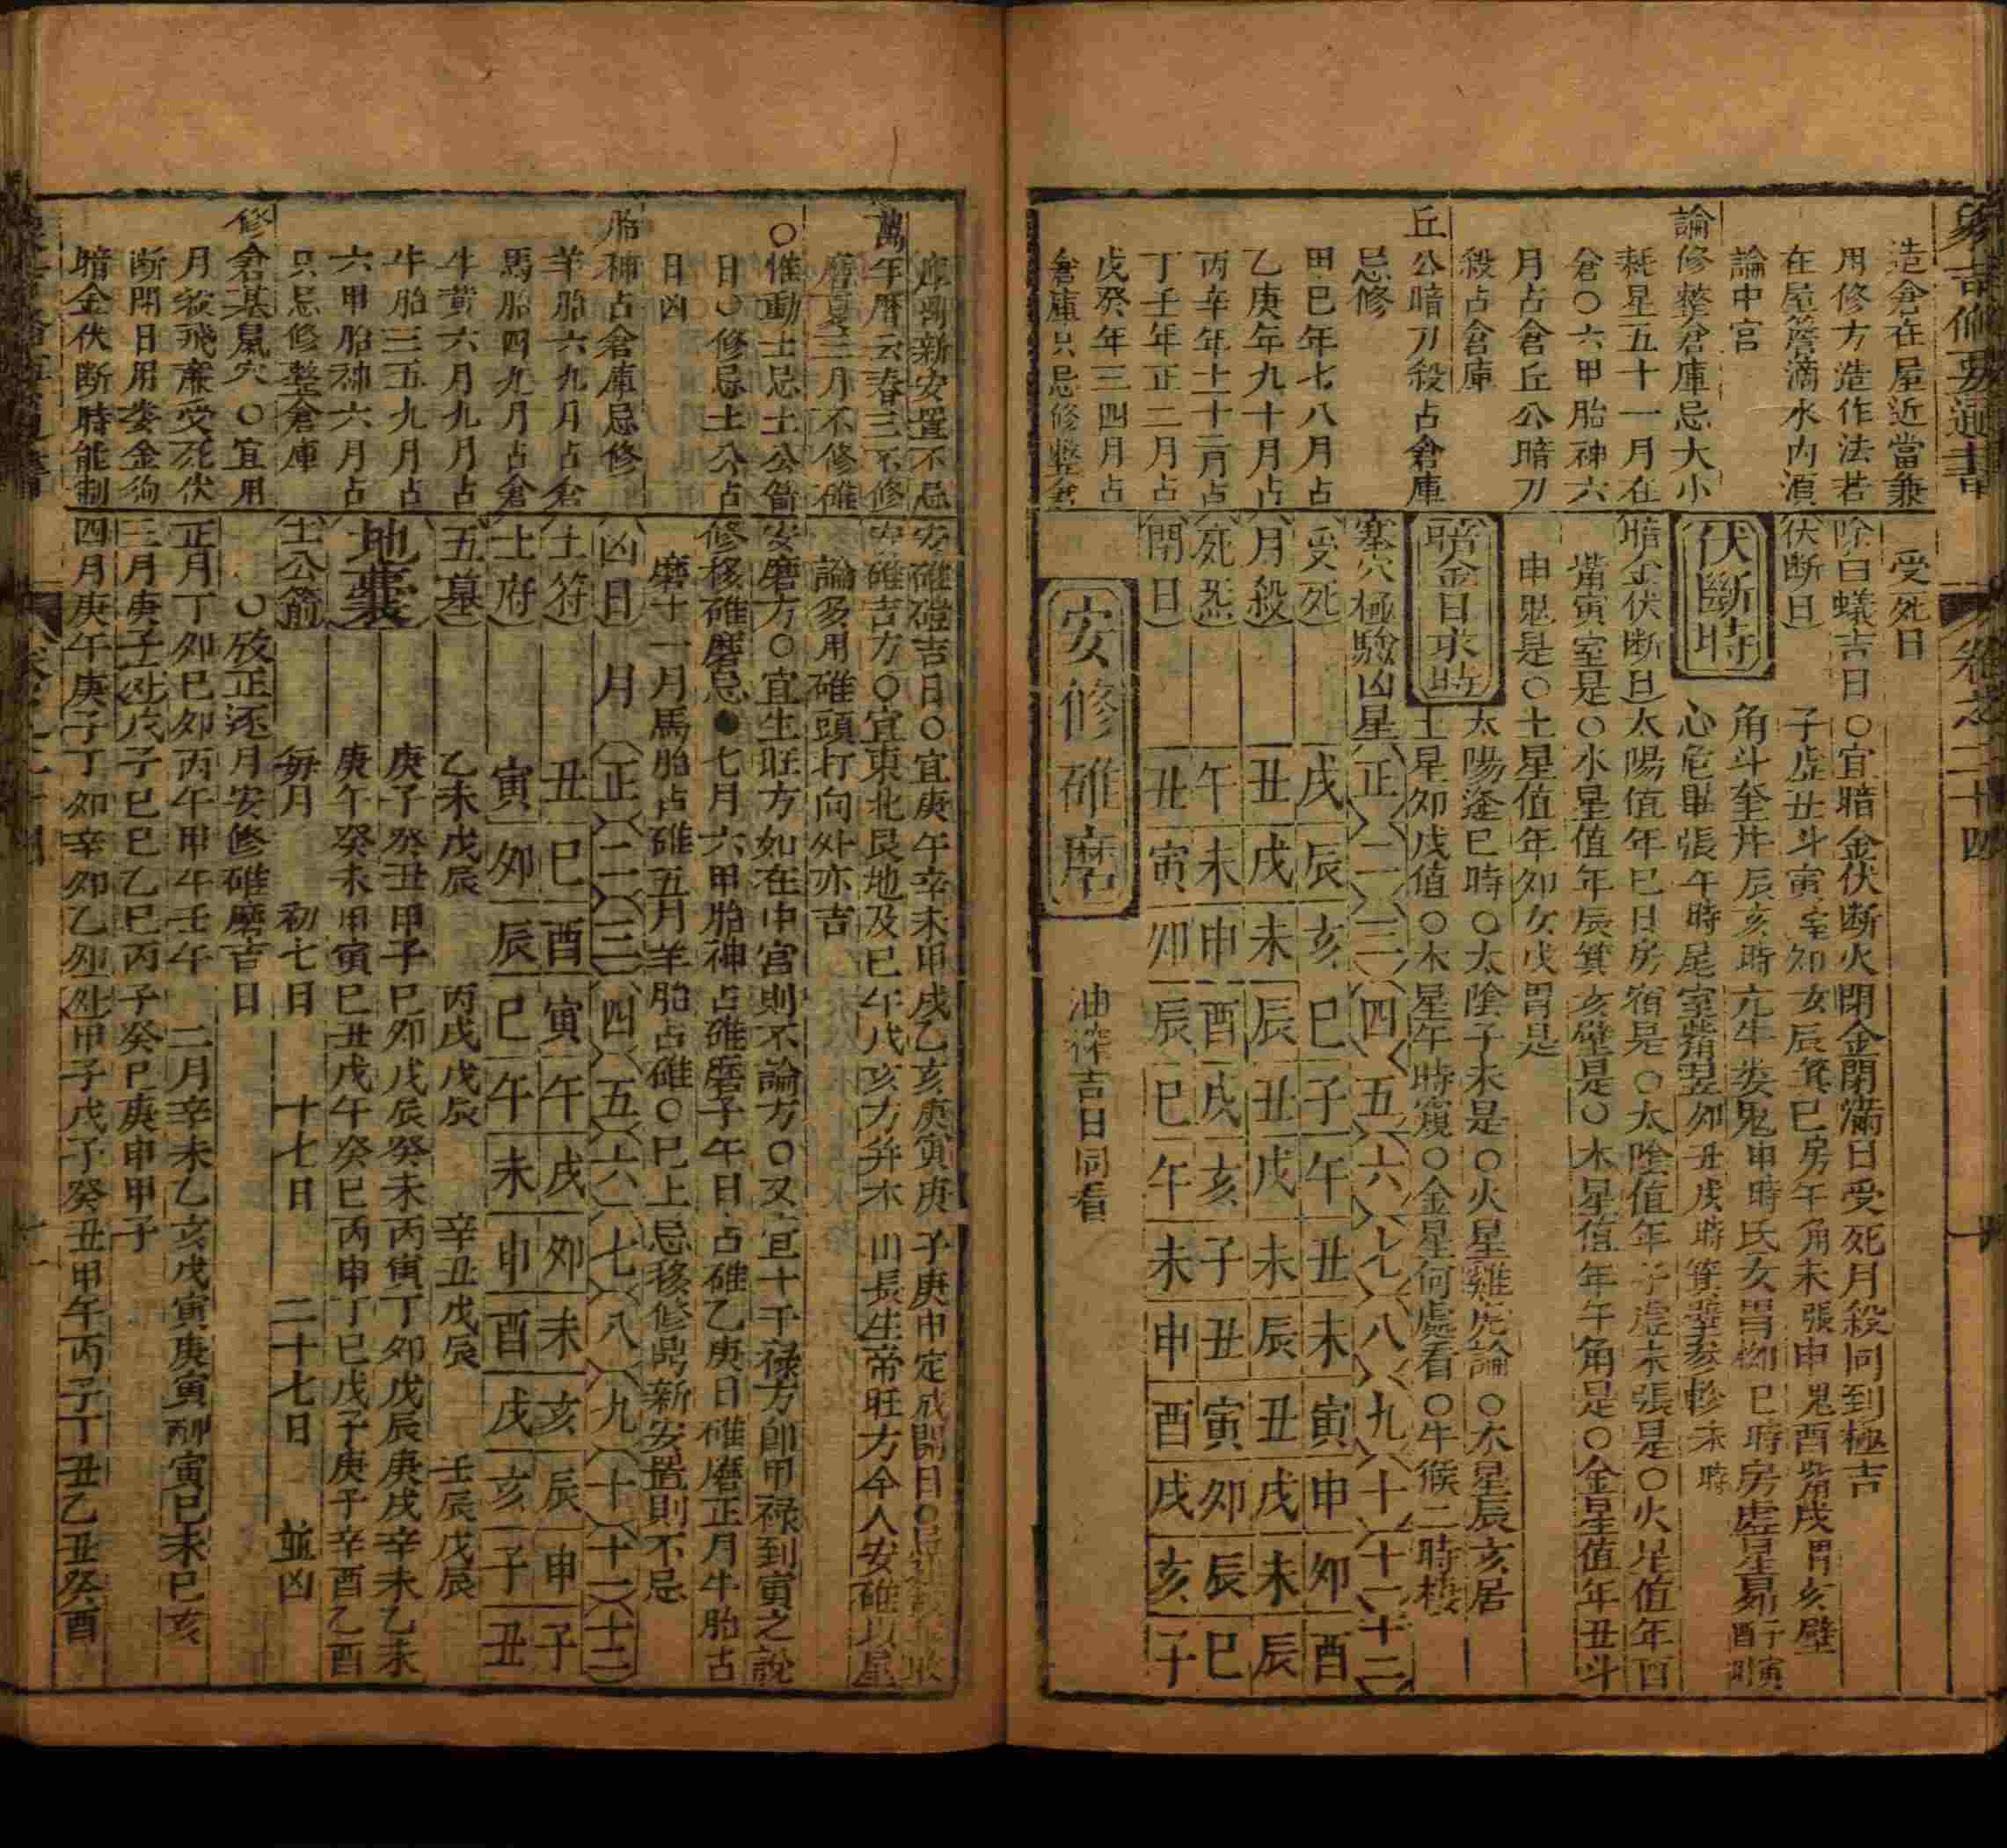 象吉備要通書
卷之二十四
造倉在屋近當兼
用修方造作法若
在屋簷滴水內須
論中宮
論修整倉庫忌大小
耗星五十一月在
倉〇六甲胎神六
月占倉丘公暗刀
殺占倉庫
丘公暗刀殺占倉庫
忌修
甲巳年七八月占
乙庚年九十月占
丙辛年十一十二月占
丁壬年正二月占
戊癸年三四月占
倉庫只忌修整倉
受死日
除白蟻吉日〇宜暗金伏断火閉金閉滿日受死月殺同到極吉
伏断日 子虛丑斗寅室卯女辰箕巳房午角未張申鬼酉觜戌胃亥壁
伏斷時 角斗奎井辰亥時亢牛娄鬼申時氐女胃柳巳時房虛星昴子寅酉時
心危畢張午時尾室觜翌卯丑戌時箕壁參軫未時
暗金伏断日 太陽值年巳日房宿是〇太陰值年子虛未張是〇火星值年酉
觜寅室是〇水星值年辰箕亥壁是〇木星值年午角是〇金星值年丑斗
申鬼是〇土星值年卯女戌胃是
暗金日求時 太陽逢巳時〇太陰子未是〇火星雞虎論〇水星辰亥居
土星卯戌值〇木星午時窺〇金星何處看〇牛猴二時棲
塞穴極驗凶星 正 二 三 四 五 六 七 八 九 十 十一 十二
受死 戌 辰 亥 巳 子 午 丑 未 寅 申 卯 酉
月殺 丑 戌 未 辰 丑 戌 未 辰 丑 戌 未 辰
死炁 午 未 申 酉 戌 亥 子 丑 寅 卯 辰 巳
閉日 丑 寅 卯 辰 巳 午 未 申 酉 戌 亥 子
安修碓磨 油榨吉日同看
新安置不忌
萬年曆云春三不修
磨夏三月不修碓
〇惟動土忌土公箭
日〇修忌土公占
日凶
胎神占倉庫忌修
羊胎六九月占倉
馬胎四九月占倉
牛黃六月九月占
牛胎三五九月占
六甲胎神六月占
只忌修整倉庫
修倉基鼠穴〇宜用
月殺飛廉受死伏
断閉日用娄金狗
暗金伏断時能制
安碓磑吉日〇宜庚午辛未甲戌乙亥庚寅庚子庚申定成開日
安碓吉方〇宜東北艮地及巳午戌亥方并本山長生帝旺方今人安碓以星
論多用碓頭打向外亦吉
安磨方〇宜生旺方如在中宮則不論方〇又宜十干禄方即甲禄到寅之說
修移碓磨忌●七月六甲胎神占碓磨子午日占碓乙庚日碓磨正月牛胎占
磨十一月馬胎占碓五月羊胎占碓〇巳上忌移修鼎新安置則不忌
凶日 月 正 二 三 四 五 六 七 八 九 十 十一 十二
土符 丑 巳 酉 寅 午 戌 卯 未 亥 辰 申 子
土府 寅 卯 辰 巳 午 未 申 酉 戌 亥 子 丑
五墓 乙未戊辰 丙戌戊辰 辛丑戊辰 壬辰戊辰
地囊 庚子癸丑甲子巳卯戊辰癸未丙寅丁卯戊辰庚戌辛未乙未
庚午癸未甲寅巳丑戊午癸巳丙申丁巳戊子庚子辛酉乙酉
土公箭 每月 初七日 十七日 二十七日 並凶
〇攷正逐月安修碓磨吉日
正月丁卯巳卯丙午甲午壬午 二月辛未乙亥戊寅庚寅甲寅巳未巳亥
三月庚子丙戌子巳巳乙巳丙子癸巳庚申甲子
四月庚午庚子丁卯辛卯乙卯丙甲子戊子癸丑甲午丙子丁丑乙丑癸酉